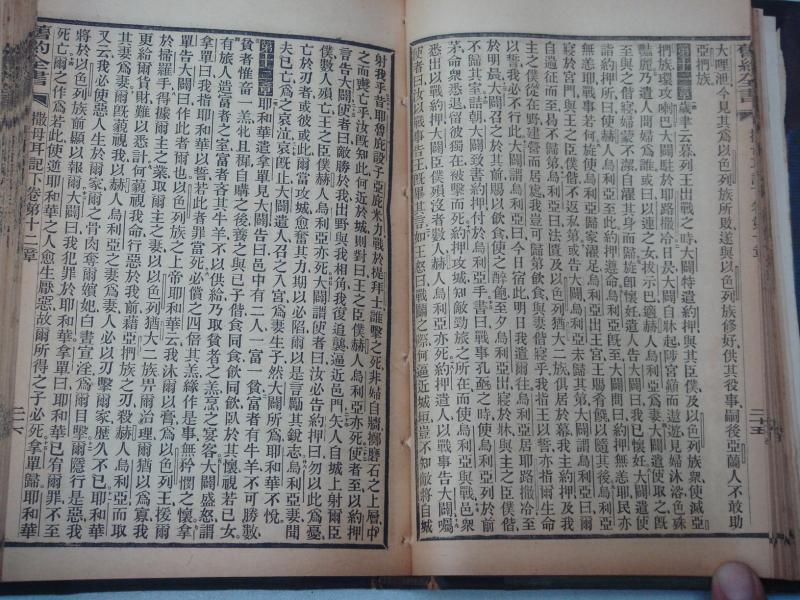 大哩泄今見其為以色列族所敗遂與以色列族修好供其役事嗣後亞蘭人不敢助
亞捫族
第十一章歲聿云暮列王出戰之時大闢特遣約押與其臣僕及以色列族衆使滅亞
捫族環攻喇巴大闢駐於耶路撒冷日昃大闢自牀起陟宮巔而遨遊見婦沐浴色殊
艷麗乃遣人問婦為誰或曰以連之女拔示巴適赫人烏利亞為妻大闢遣使取之既
至與之偕寢婦蒙不潔自濯其身而歸旋即懷妊遣人告大闢曰我已懷妊大闢遣使
詣約押所曰使赫人烏利亞至此約押遵命烏利亞既至大闢問曰約押無恙耶民亦
無恙耶戰事若何旋使烏利亞歸家濯足烏利亞出王宮王賜肴饌以隨其後烏利亞
寢於宮門與王之臣僕偕不返私第或告大闢烏利亞未歸其第大闢謂烏利亞曰爾
自遠征而至曷不歸第烏利亞曰法匱及以色列族猶大二族俱居於幕我主約押及我
主之僕從在野建營而居處我豈可歸第飲食與妻偕寢乎我指王而誓亦指爾生命
以誓我必不行此大闢謂烏利亞曰今日宿此明日我遣爾往烏利亞居耶路撒冷至
於明晨大闢召之於其前賜以飲食使之醉飽至夕烏利亞出寢於牀與主之臣僕偕
不歸其室詰朝大闢致書約押付於烏利亞手書曰戰事孔亟之時使烏利亞列於前
茅命衆悉退留彼獨在被擊而死約押攻城知敵勁旅之所在而使烏利亞與戰邑衆
悉出以戰約押大闢之臣僕殞沒者數人赫人烏利亞亦死約押遣人以戰事告大闢囑
使者曰汝以戰事告王既畢其言如王怒曰戰鬭之際何逼近城垣豈不知敵將自城
射我乎昔耶魯庇設子亞庇米力戰於提拜士誰擊之死非婦自牆擲磨石之上層中
之而喪亡乎汝既知此何近於城則對曰王之臣僕赫人烏利亞亦死使者至以約押
言告大闢使者曰敵勝於我出野與我相角我復追襲逼近邑門矢人自城上射爾臣
僕數人殞亡王之臣僕赫人烏利亞亦死大闢謂使者曰汝必告約押曰勿以此為憂
亡於刃者或彼或此爾當攻城愈奮其力期以必陷爾以是言勵其銳志烏利亞妻聞
夫已亡為之哀泣哀既止大闢遣人召之入宮為妻生子然大闢所為耶和華不悅
第十二章耶和華遣拿單見大闢告曰邑中有二人一富一貧富者有牛羊不可勝數
貧者惟畜一羔牝且稺自購之後養之與已子偕食同食飲同飲臥於其懷視若已女
有旅人造富者之室富者吝其牛羊不以供給乃取貧者之羔烹之宴客大闢盛怒謂
拿單曰我指耶和華以誓若此者罪當死必償之四倍其羔緣作是事無矜憫之懷拿
單告大闢曰作此者爾也以色列族之上帝耶和華云我沐爾以膏為以色列王援爾
於掃羅手得據爾主之業取爾主之妻以以色列猶大二族畀爾治理爾猶以為寡我
更給爾貨財難以悉計何藐視我命行惡於我前藉亞捫族之刃殺赫人烏利亞而取
其妻為妻爾既藐視我以赫人烏利亞之妻為妻人必以刃擊爾家歷久不已耶和華
又云我必使人加害於爾家爾之骨肉奪爾嬪妃白晝宣淫為爾目擊爾隱行是惡我
將於以色列族前顯以報爾大闢曰我犯罪於耶和華拿單曰耶和華已宥爾罪不至
死亡爾之作為若此使逆耶和華之人愈生厭惡故爾所得之子必死拿單歸耶和華
舊約全書
撒母耳記下卷第十二章
二六
舊約全書
二十五